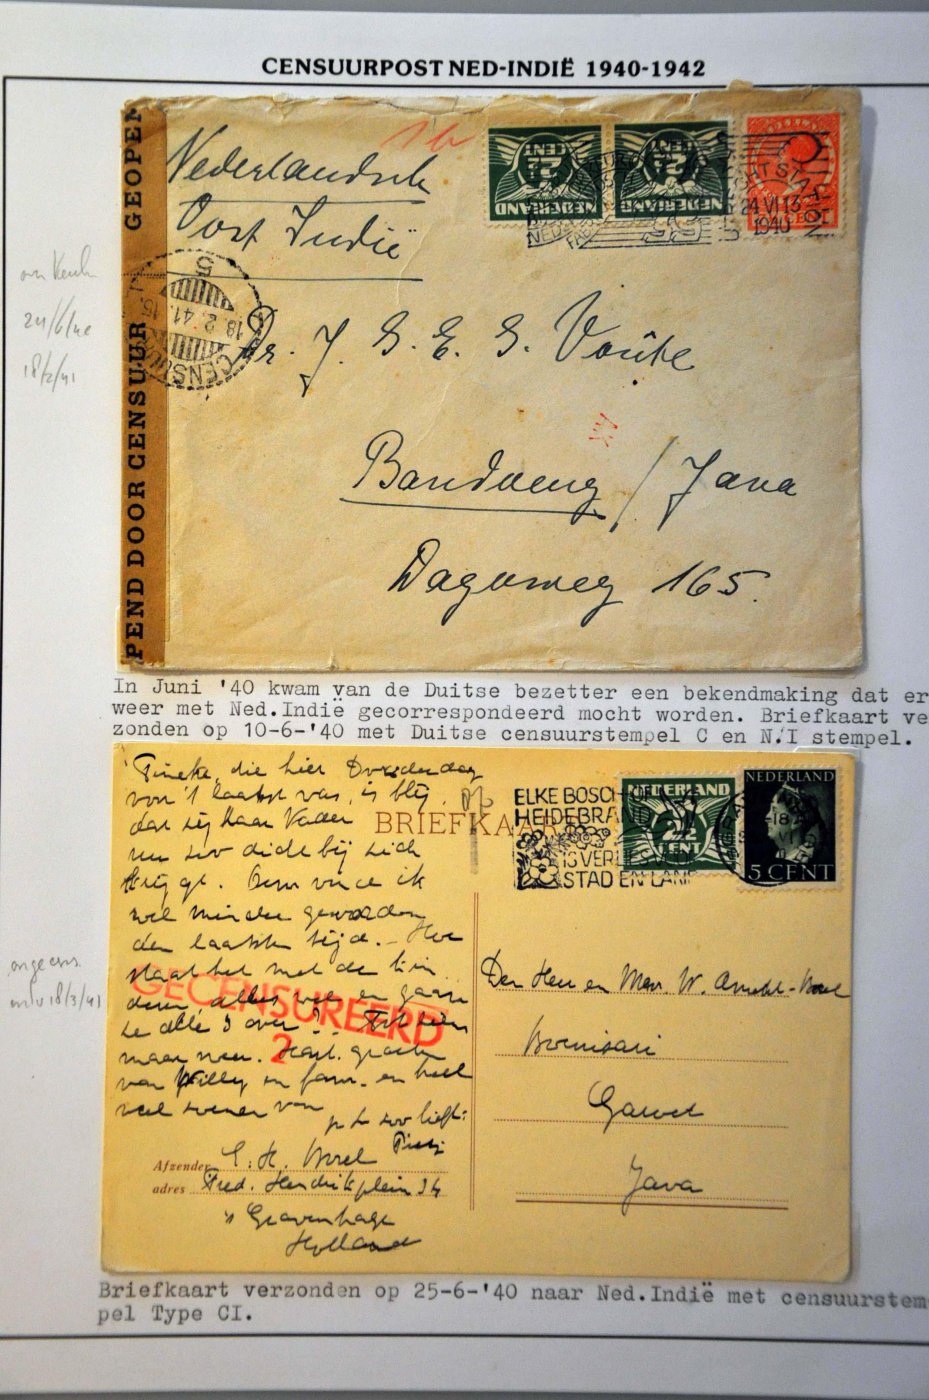 CENSUURPOST NED-INDIË 1940-1942
PEND DOOR CENSUUR GEOPEN
Nederlandsch
Oost Indië
1b
2½
CENT
NEDERLAND
2½
CENT
NEDERLAND
24 VI 13
1940
CENSUUR
18.2.41.15
5
24/6/40
18/2/41
Mr. J. G. E. G. Voûte
Bandoeng / Java
Dagoweg 165.
In Juni '40 kwam van de Duitse bezetter een bekendmaking dat er
weer met Ned.Indië gecorrespondeerd mocht worden. Briefkaart ve
zonden op 10-6-'40 met Duitse censuurstempel C en N.I stempel.
BRIEFKAART
Tineke, die hier Donderdag
voor 't laatst was, is blij,
dat zij haar Vader
nu zoo dicht bij zich
krijgt. vind ik
wel minder geworden
den laatsten tijd. - Hoe
staat het met de
alles wel en gaan
ze alle 3 over? Tot ziens
maar weer. Hart. groeten
van Willy en fam. en heel
veel van
zoo lieft:
GECENSUREERD
2
ELKE BOSCH
HEIDEBRAND
IS VERLIES VOOR
STAD EN LAND
NEDERLAND
2½
CENT
NEDERLAND
5 CENT
18/3/41
Den Heer en Mevr. W.
Garoet
Java
Afzender
adres Fred. Hendrikplein 34
's Gravenhage
Holland
Briefkaart verzonden op 25-6-'40 naar Ned.Indië met censuurstem
pel Type CI.